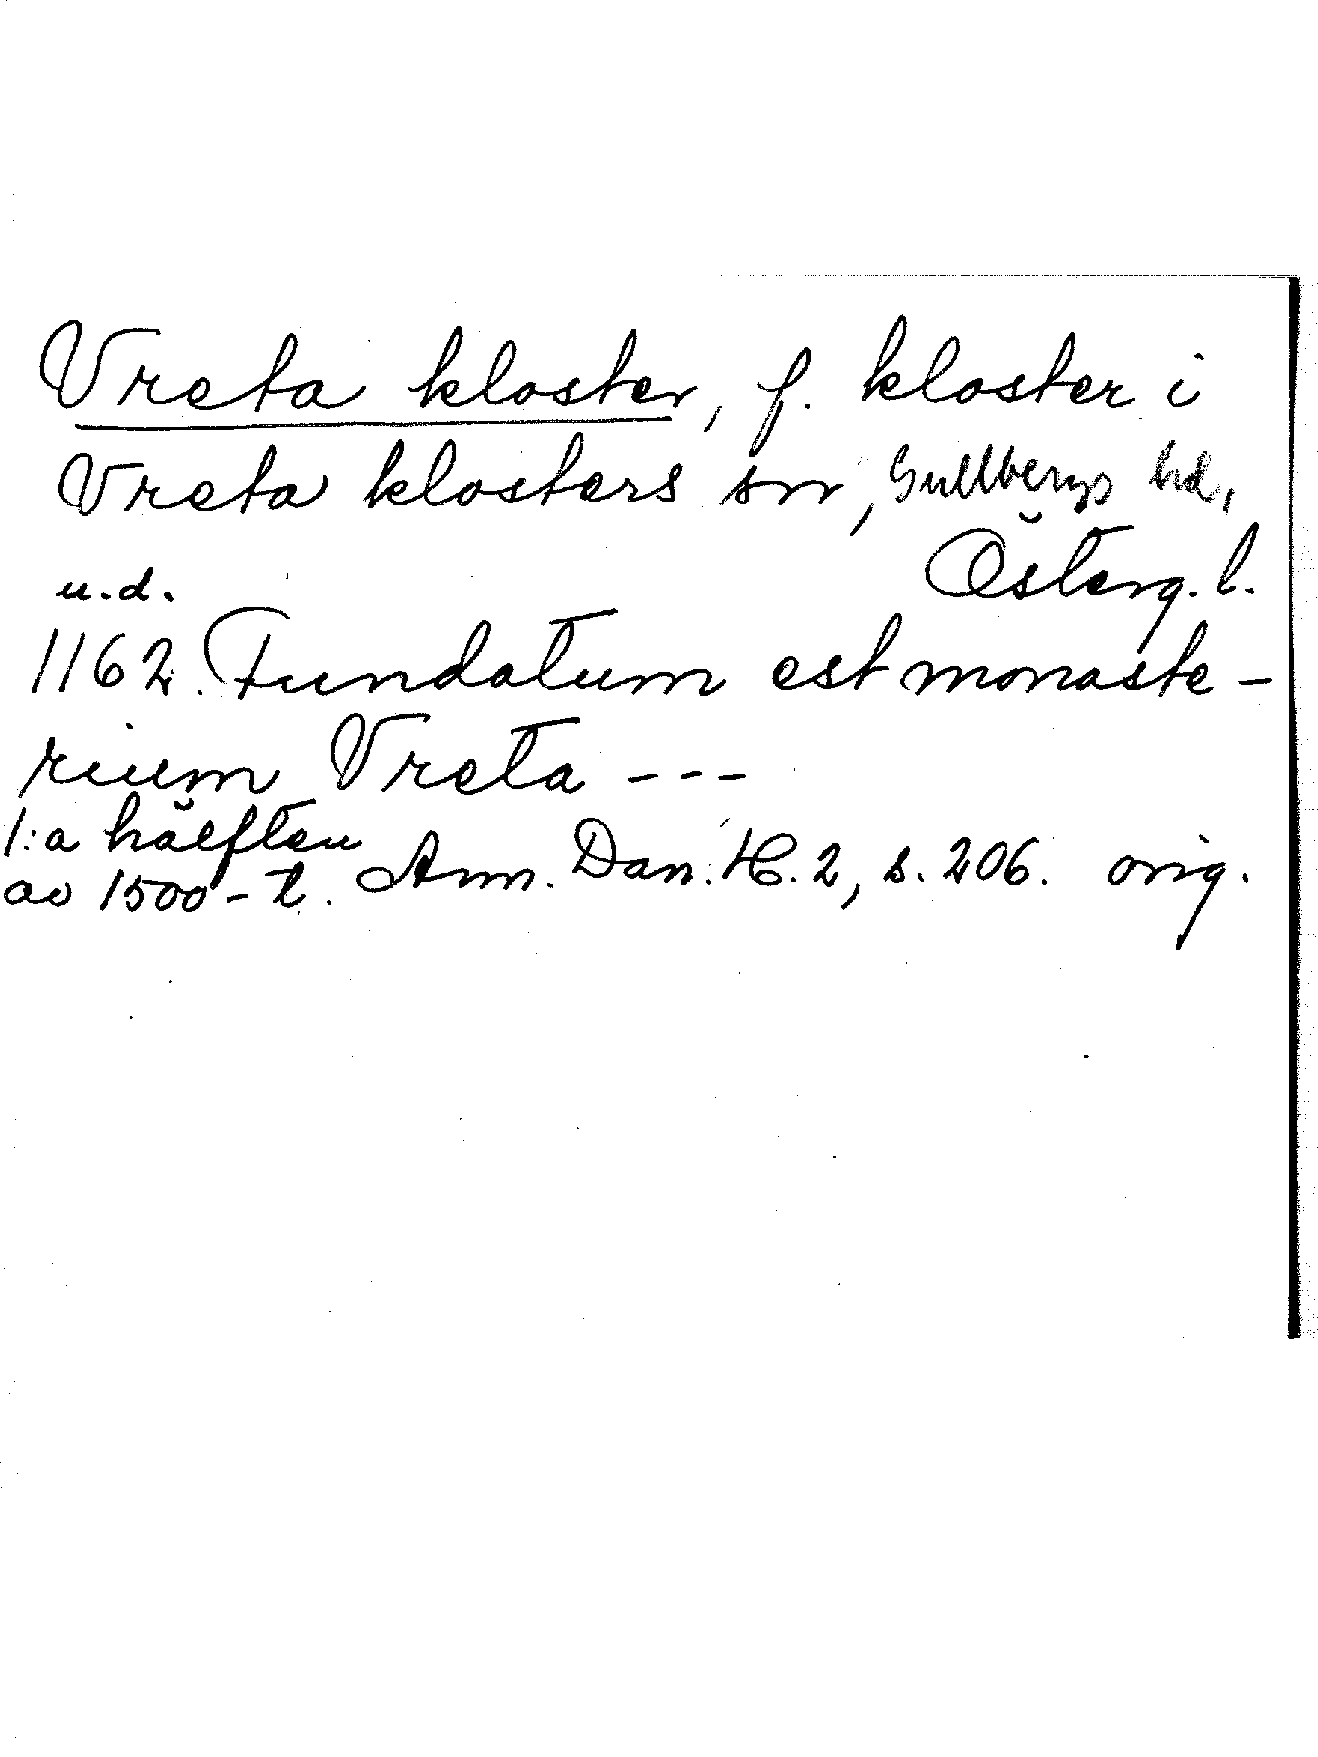 Vreta kloster, f. kloster i
Vreta klosters sn, Gullbergs hd,
Österg. l.
u.d.
1162. Fundatum est monaste-
rium Vreta ---
1:a hälften
av 1500-t. Ann. Dan. H. 2, s. 206. orig.